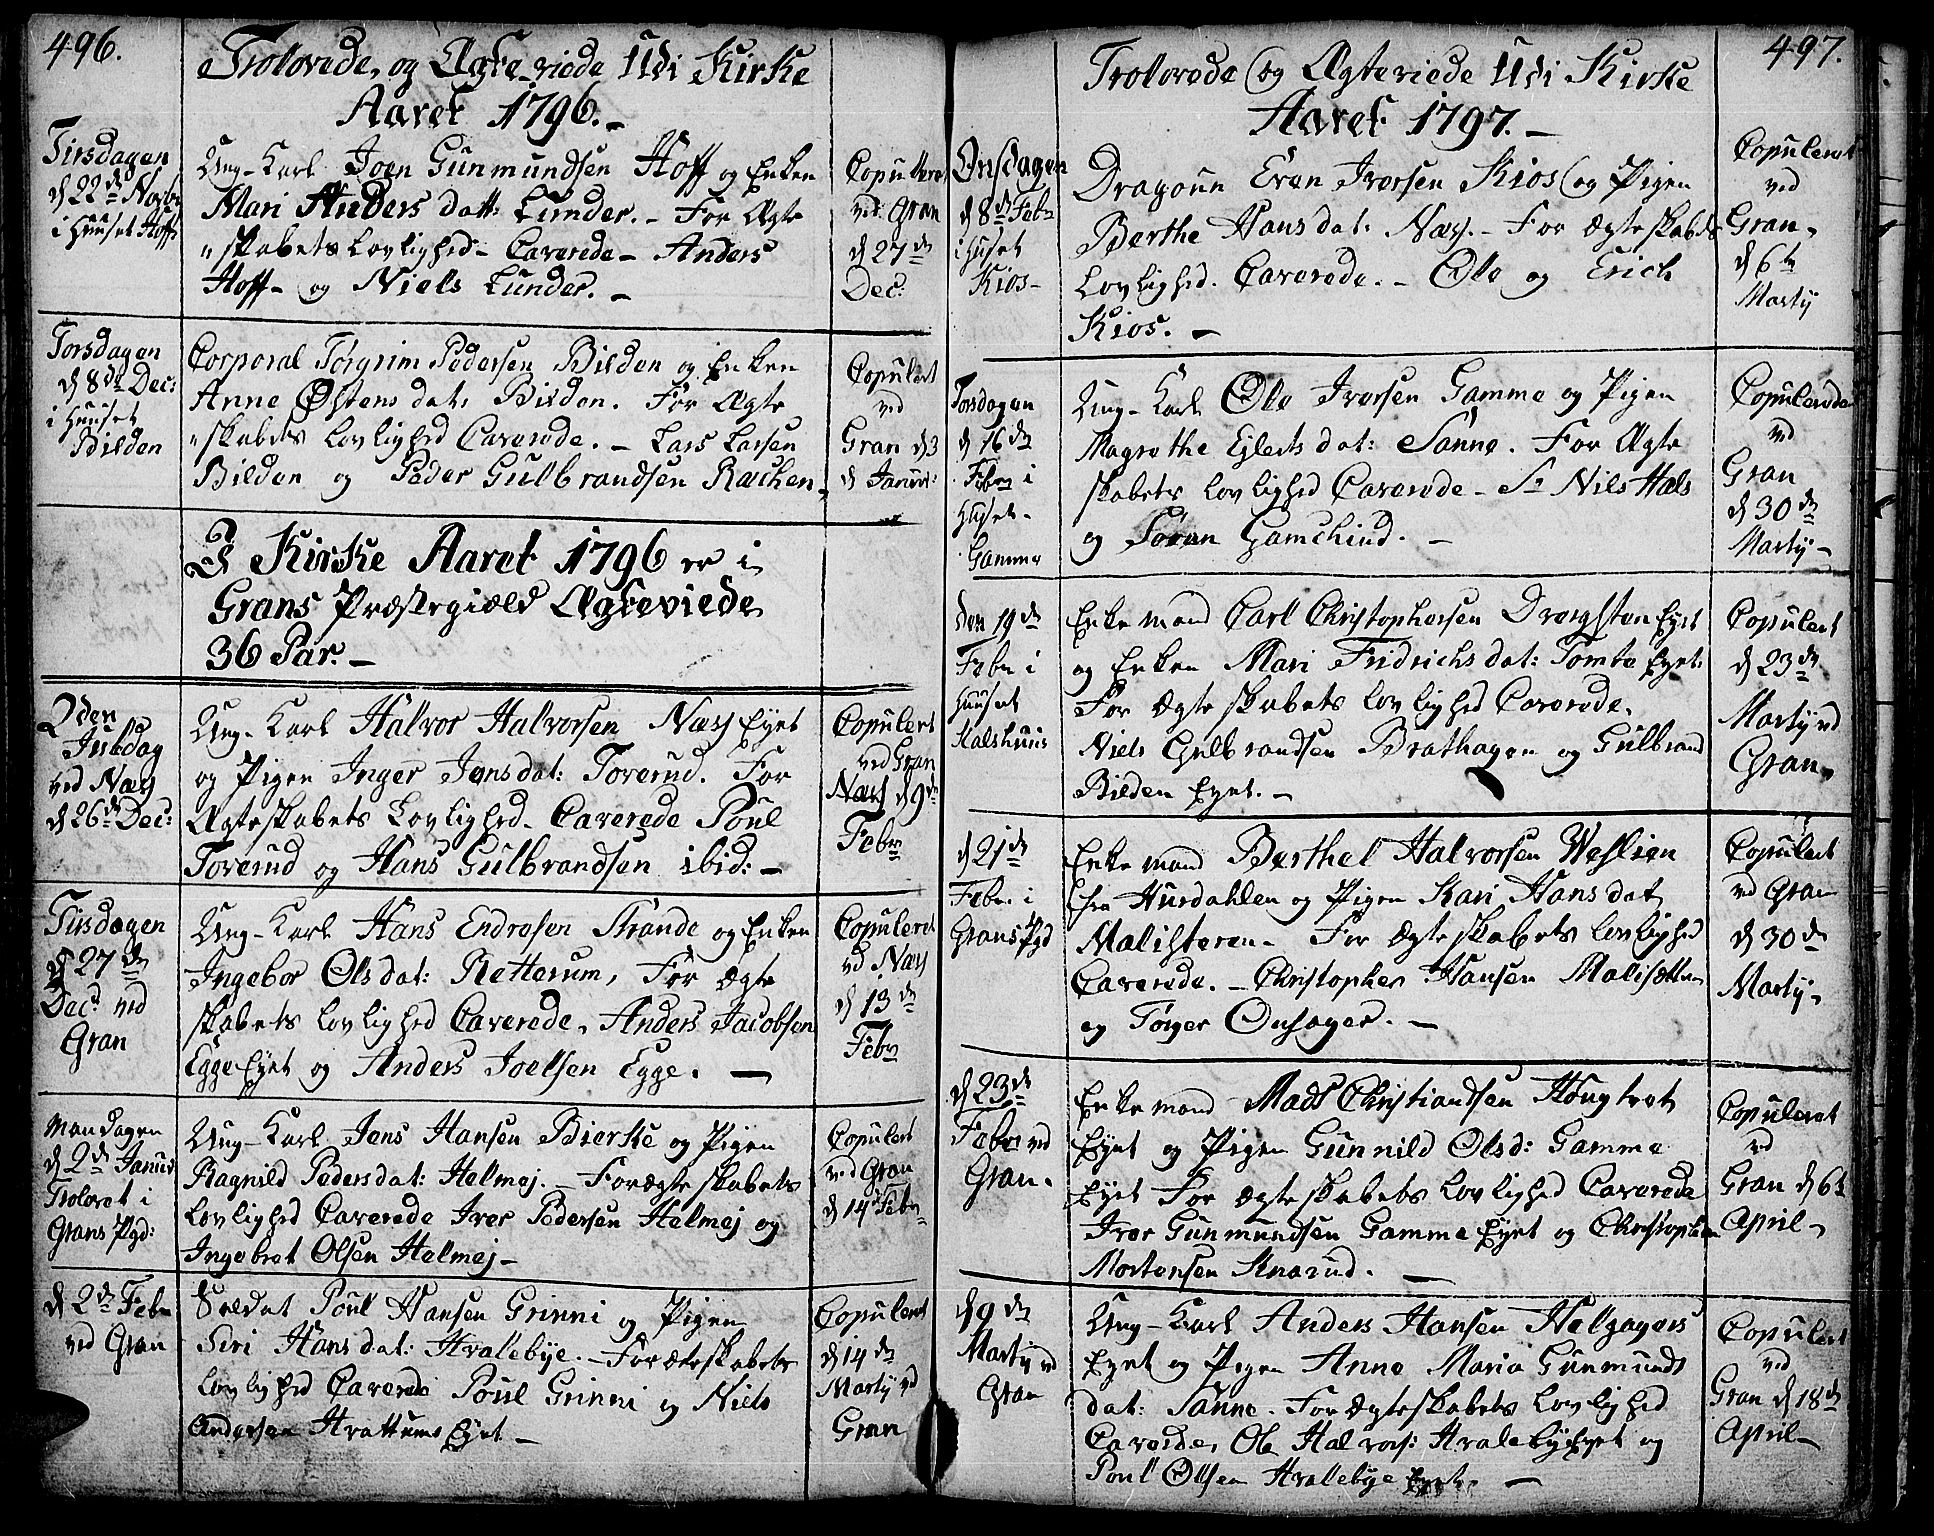 496.
Trolovede, og Ægteviede Udi Kirke
Aaret 1796.
Tirsdagen
d 22de Novbr
i Huuset Hoff
Ung-Karl Joen Gunmundsen Hoff og Enken
Mari Anders datt: Lunder. - For Ægte
skabets Lovlighed - Caverede - Anders
Hoff - og Niels Lunder. -
Copulleret
ved Gran
d 27de
Dec:
Torsdagen
d 8de Dec:
i Huuset
Bilden
Corporal Tørgrim Pedersen Bilden og Enken
Anne Østens dat: Bilden. For Ægte
skabets Lovlighed Caverede. - Lars Larsen
Bilden og Peder Gulbrandsen Rachen
Copulert
ved
Gran d 3
d Januar:
I Kirke Aaret 1796 er i
Grans Præstegiæld Ægteviede
36 Par. -
2den
Juledag
ved Næss
d 26de Dec:
Ung-Karl Halvor Halvorsen Næss Eyet
og Pigen Inger Jensdat: Toverud. For
Ægteskabets Lovlighed. Caverede Poul
Toverud og Hans Gulbrandsen ibid: -
Copulert
ved Gran
Næss d 9de
Febr
Tirsdagen
d 27de
Dec: ved
Gran
Ung-Karl Hans Endresen Strande og Enken
Ingebor Ols dat: Retterum, For Ægte
skabets Lovlighed Caverede, Anders Jacobsen
Egge Eyet og Anders Joelsen Egge. -
Copuleret
ved Næss
d 13de
Febr
Mandagen
d 2de Januar
Troloved i
Grans Pgd:
Ung-Karl Jens Hansen Bierke og Pigen
Ragnild Peders dat: Helmej. - For ægteskabets
Lovlighed Caverede Iver Pedersen Helmej og
Ingebret Olsen Helmej -
Copulert
ved Gran
d 14 Febr
d 2de Febr
ved Gran
Soldat Poul Hansen Grinni og Pigen
Siri Hans dat: Hvalebye. - For ægteskabets
Lovlighed Caverede Poul Grinni og Niels
Andersen Hvattums Eyet -
Copulert
d 14de
Marty ved
Gran
497.
Trolovede og Ægteviede Udi Kirke
Aaret 1797. -
Onsdagen
d 8de Febr
i Huset
Kios -
Dragoun Even Iversen Kios og Pigen
Berthe Hans dat: Næss. - For ægteskabets
Lovlighed. Caverede. - Ole og Erich
Kios. -
Copuleret
ved
Gran
d 6te
Marty
Torsdagen
d 16de
Febr i
Huset
Gamme
Ung-Karl Ole Iversen Gamme og Pigen
Magrethe Eylerts dat: Sanne. For Ægte
skabets Lovlighed Caverede - Sr Niels Hals
og Søren Gamchind. -
Copulerede
ved
Gran
d 30de
Marty -
Den 19de
Febr i
Huuset
Halshuus
Enkemand Carl Christophersen Eyet
og Enken Mari Fridrichs dat: Tomte Eyet:
For Ægteskabets Lovlighed Caverede.
Niels Gulbrandsen Brathagen og Gulbrand
Bilden Eyet. -
Copulert
d 23de
Marty ved
Gran
d 21de
Febr. i
Grans Pgd
Enkemand Berthel Halvorsen Weslien
fra Hurdahlen og Pigen Kari Hans dat
Malisteren - For Ægteskabets Lovlighed
Caverede. - Christopher Hansen
og Torger Onsager. -
Copulert
ved Gran
d 30de
Marty -
d 23de
Febr ved
Gran.
Enkemand Mads Christiandsen
Eyet og Pigen Gunnild Olsd: Gamme
Eyet For Ægteskabets Lovlighed Caverede
Iver Gunmundsen Gamme Eyet og Christopher
Mortensen Knarud. -
Copuleret
ved
Gran d 6te
April -
d 9de
Marty ved
Gran
Ung-Karl Anders Hansen Helgagers
Eyet og Pigen Anne Maria Gunmunds
dat: Sanne. For Ægteskabets Lovlighed
Caverede, Ole Halvors: Hvalebye Eyet og
Poul Ollsen Hvallebye Eyet. -
Copulert
ved
Gran d 18de
April -